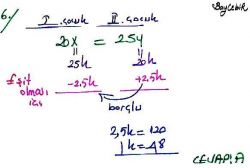 Bay Çelik
6/ I. çocuk II. çocuk
20x = 25y
25k 20k
Eşit olması için -2,5k +2,5k
borçlu
2,5k = 120
1k = 48
CEVAP: A